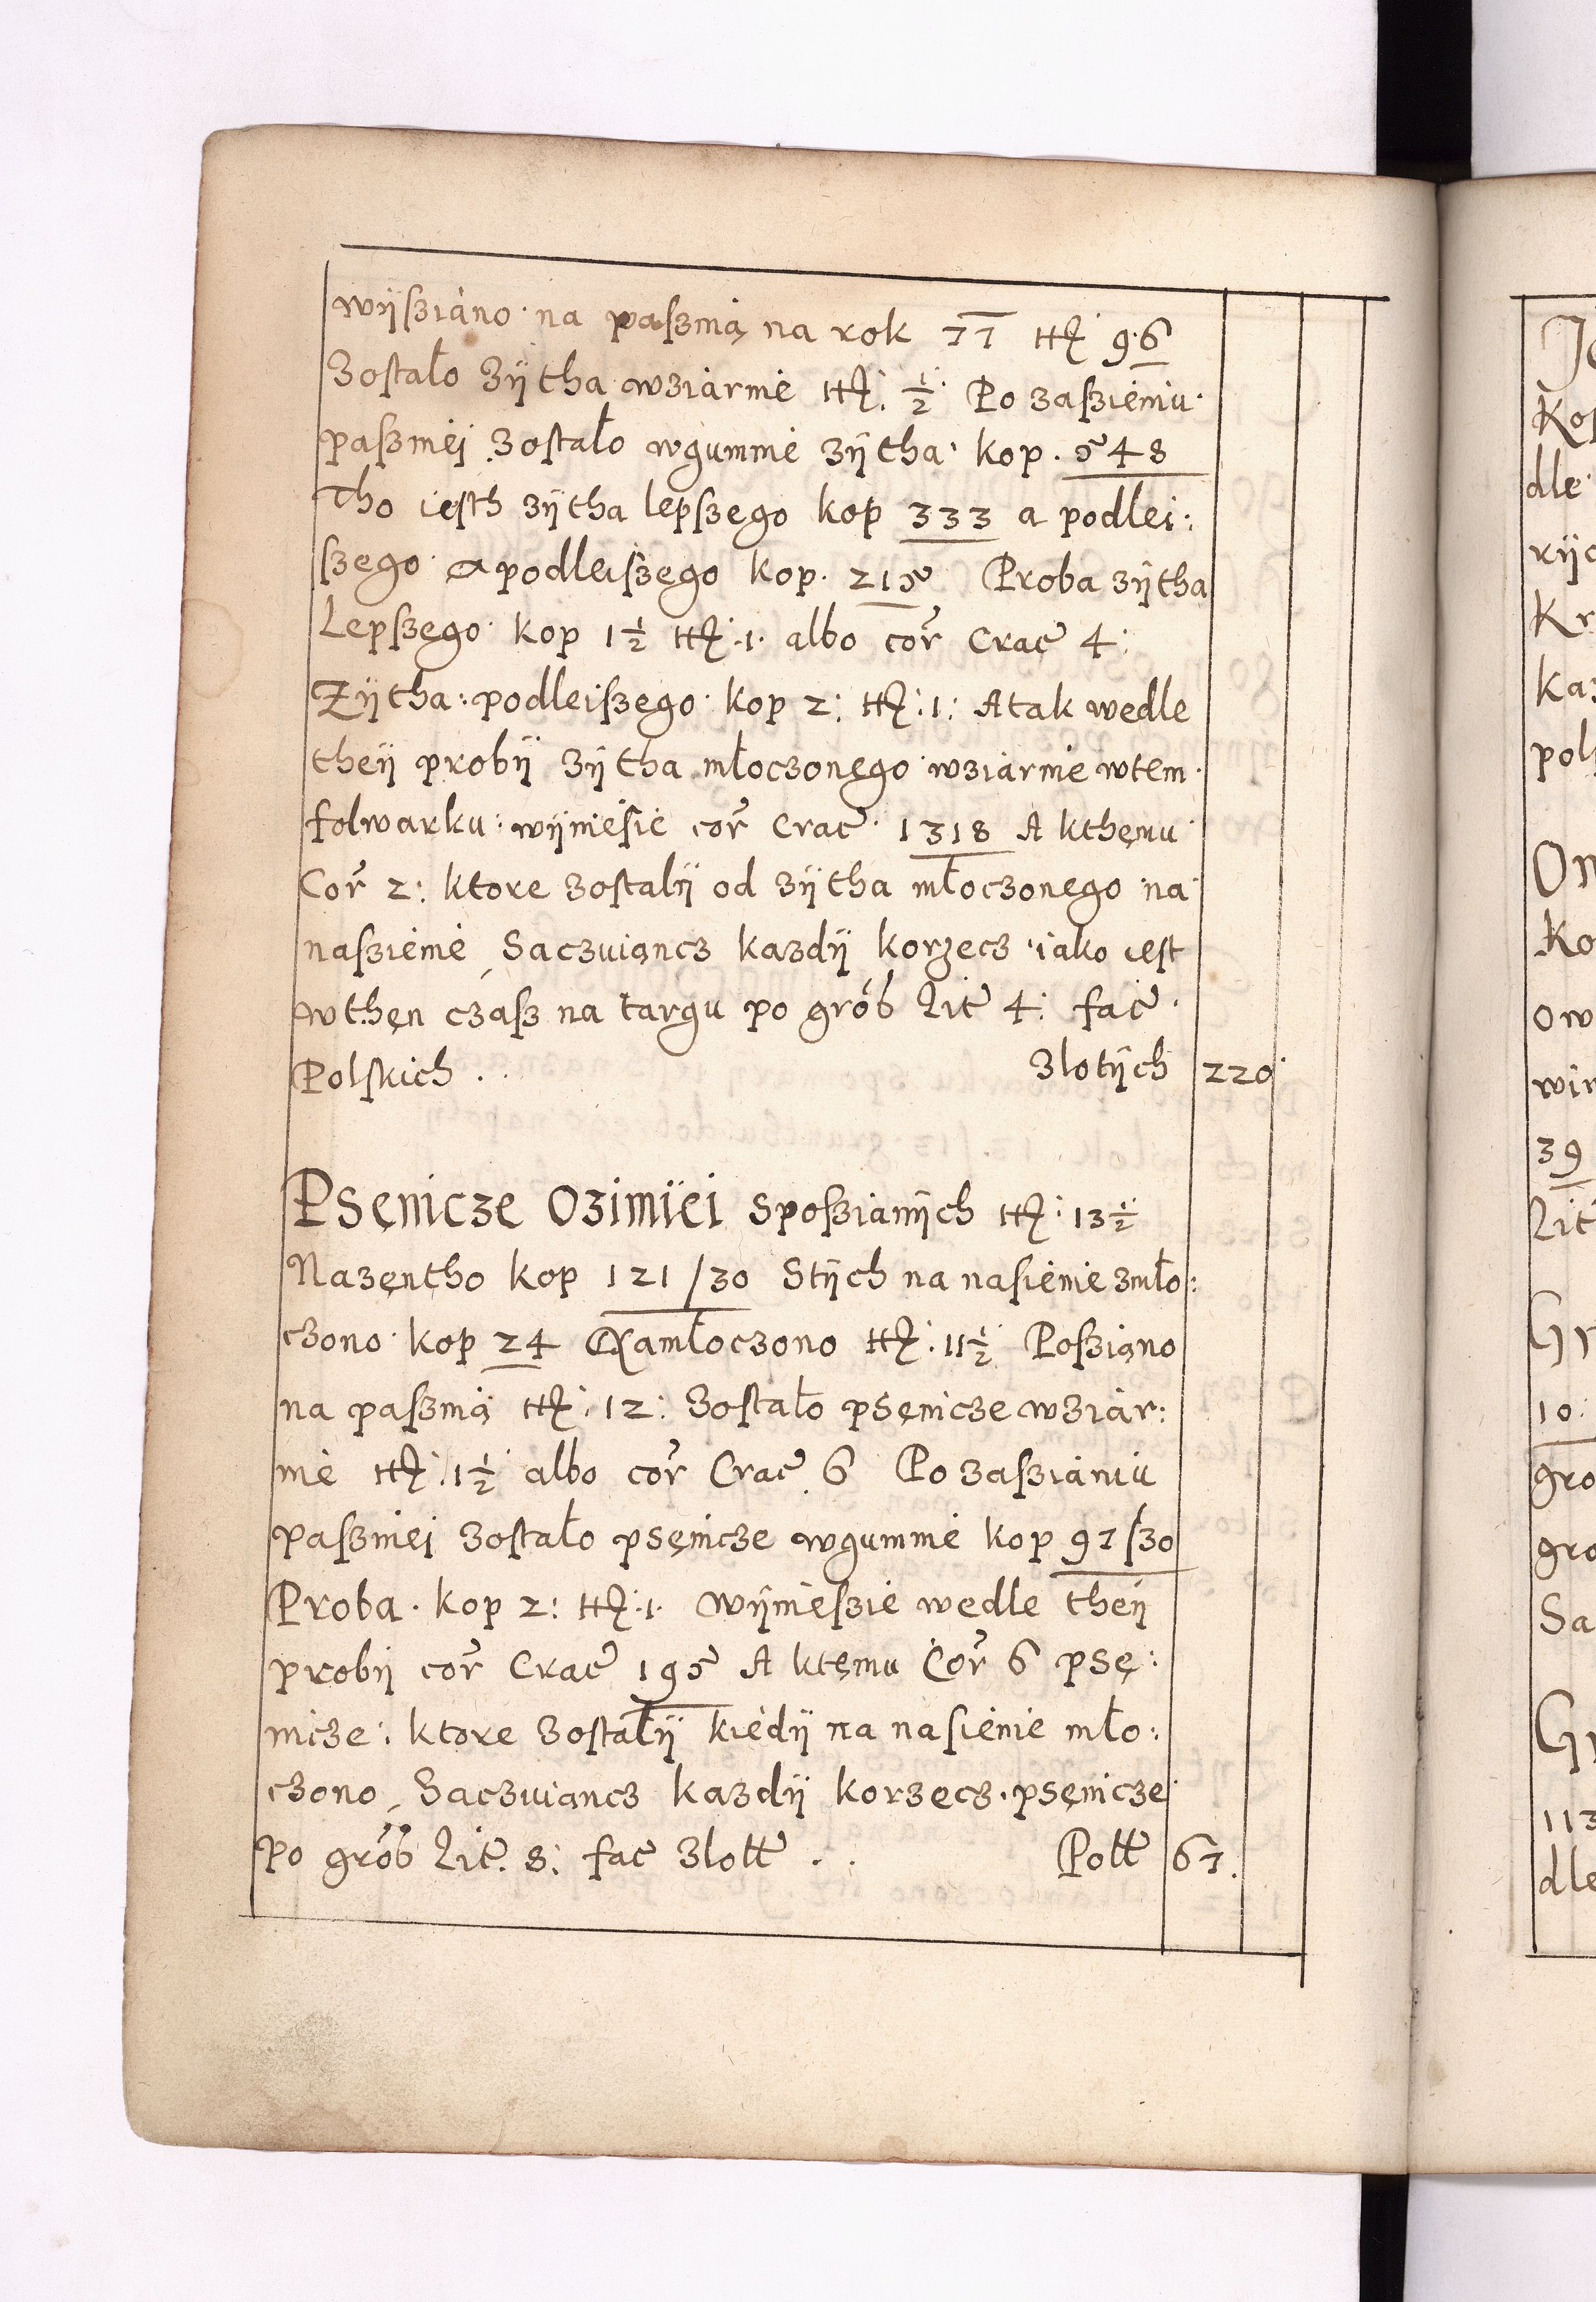 wÿsziano na paszmą na rok 77 ttł 96
Zostało zÿtha wziarnie ttł. ½ Po zaszieniu
paszniej zostało wgumnie zÿtha kop. 548
Tho iesth zÿtha lepszego kop 333 a podlei:
szego a podleiszego kop. 215 Proba zÿtha
Lepszego kop 1½ ttł. 1. albo cor̃ Crac̃ 4:
Zÿtha: podleiszego kop 2: ttł: 1: A tak wedle
theÿ probÿ zÿtha młoczonęgo wziarnie wtem
folwarku: wÿniesie cor̃ Crac̃ 1318 A kthęmu
Cor̃ 2: ktore zostalÿ od zÿtha młoczonego na
naszienie, Saczuiąncz kazdÿ korzecz iako iest
wthęn czasz na targu po gróß Lit̃ 4: fac̃
Polskich . . Zlotÿch 220
Psęnicze Ozimÿei Sposzianÿch ttł: 13½
Nazęntho kop 121/30 Stÿch na nasienie zmło:
czono kop 24 Namłoczono ttł: 11½ Posziąno
na paszmą ttł: 12: Zostało psęnicze wziar:
nie ttł: 1½ albo cor̃ Crac̃ 6 Po zaszianiu
paszniei zostało psęnicze wgumnie kop 97/30
Proba. kop 2: ttł: 1. Wÿnieszie wedle theÿ
probÿ cor̃ Crac̃ 195 A ktęmu Cor̃ 6 psę:
nicze: ktore zostałÿ kiedÿ na nasienie mło:
czono, Saczuiąncz kazdÿ korzęcz. psęnicze
po gróß Lit̃. 8: fac̃ Zlott̃ . . Poll̃ 67.
Kos
dle
Kr
Kaz
pols
On
Ko
ow
win
39
Lit
Gr
10:
gro
gro
Sa
Gr
113
dle